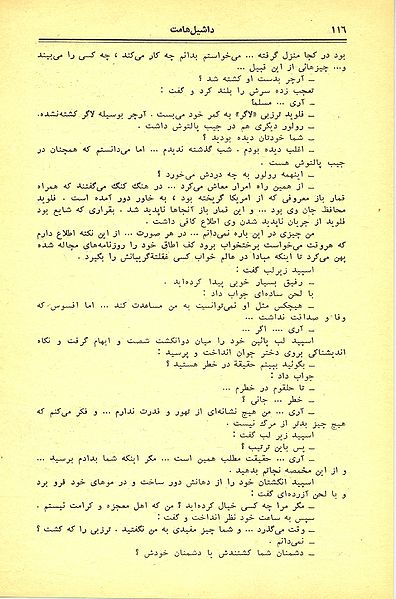 ۱۱٦ داشیل‌هامت
بود در کجا منزل گرفته ... می‌خواستم بدانم چه کار می‌کند ، چه کسی را می‌بیند
و... چیزهائی از این قبیل ...
ــ آرچر بدست او کشته شد ؟
تعجب زده سرش را بلند کرد و گفت :
ــ آری ... مسلماً
ــ فلوید ترزبی «لاگر» به کمر خود می‌بست . آرچر بوسیله لاگر کشته‌نشده.
ــ رولور دیگری هم در جیب پالتوش داشت .
ــ شما خودتان دیده بودید ؟
ــ اغلب دیده بودم . شب گذشته ندیدم ... اما می‌دانستم که همچنان در
جیب پالتوش هست .
ــ اینهمه رولور به چه دردش می‌خورد ؟
ــ از همین راه امرار معاش می‌کرد ... در هنگ کنگ می‌گفتند که همراه
قمار باز معروفی که از آمریکا گریخته بود ، به خاور دور آمده است . فلوید
محافظ جان وی بود ... و این قمار باز آنجاها ناپدید شد . بقراری که شایع بود
فلوید از جریان ناپدید شدن وی اطلاع کافی داشت .
من چیزی در این باره نمی‌دانم ... در هر صورت ... از این نکته اطلاع دارم
که هروقت می‌خواست برختخواب برود کف اطاق خود را روزنامه‌های مچاله شده
پهن می‌کرد تا اینکه مبادا در عالم خواب کسی غفلتةً گریبانش را بگیرد .
اسپید زیرلب گفت :
ــ رفیق بسیار خوبی پیدا کرده‌اید .
با لحن ساده‌ای جواب داد :
ــ هیچکس مثل او نمی‌توانست به من مساعدت کند ... اما افسوس که
وفا و صداقت نداشت ...
ــ آری .... اگر ...
اسپید لب پائین خود را میان دوانگشت شصت و ابهام گرفت و نگاه
اندیشناکی بروی دختر جوان انداخت و پرسید :
ــ بگوئید ببینم حقیقة در خطر هستید ؟
جواب داد :
ــ تا حلقوم در خطرم ...
ــ خطر ... جانی ؟
ــ آری ... من هیچ نشانه‌ای از تهور و قدرت ندارم ... و فکر می‌کنم که
هیچ چیز بدتر از مرگ نیست .
اسپید زیر لب گفت :
ــ پس باین ترتیب ؟
ــ آری ... حقیقت مطلب همین است ... مگر اینکه شما بدادم برسید ...
و از این مخمصه نجاتم بدهید .
اسپید انگشتان خود را از دهانش دور ساخت و در موهای خود فرو برد
و با لحن آزرده‌ای گفت :
ــ مگر مرا چه کسی خیال کرده‌اید ؟ من که اهل معجزه و کرامت نیستم .
سپس به ساعت خود نظر انداخت و گفت :
ــ وقت می‌گذرد ... و شما چیز مفیدی به من نگفتید . ترزبی را که کشت ؟
ــ نمی‌دانم .
ــ دشمنان شما کشتندش یا دشمنان خودش ؟